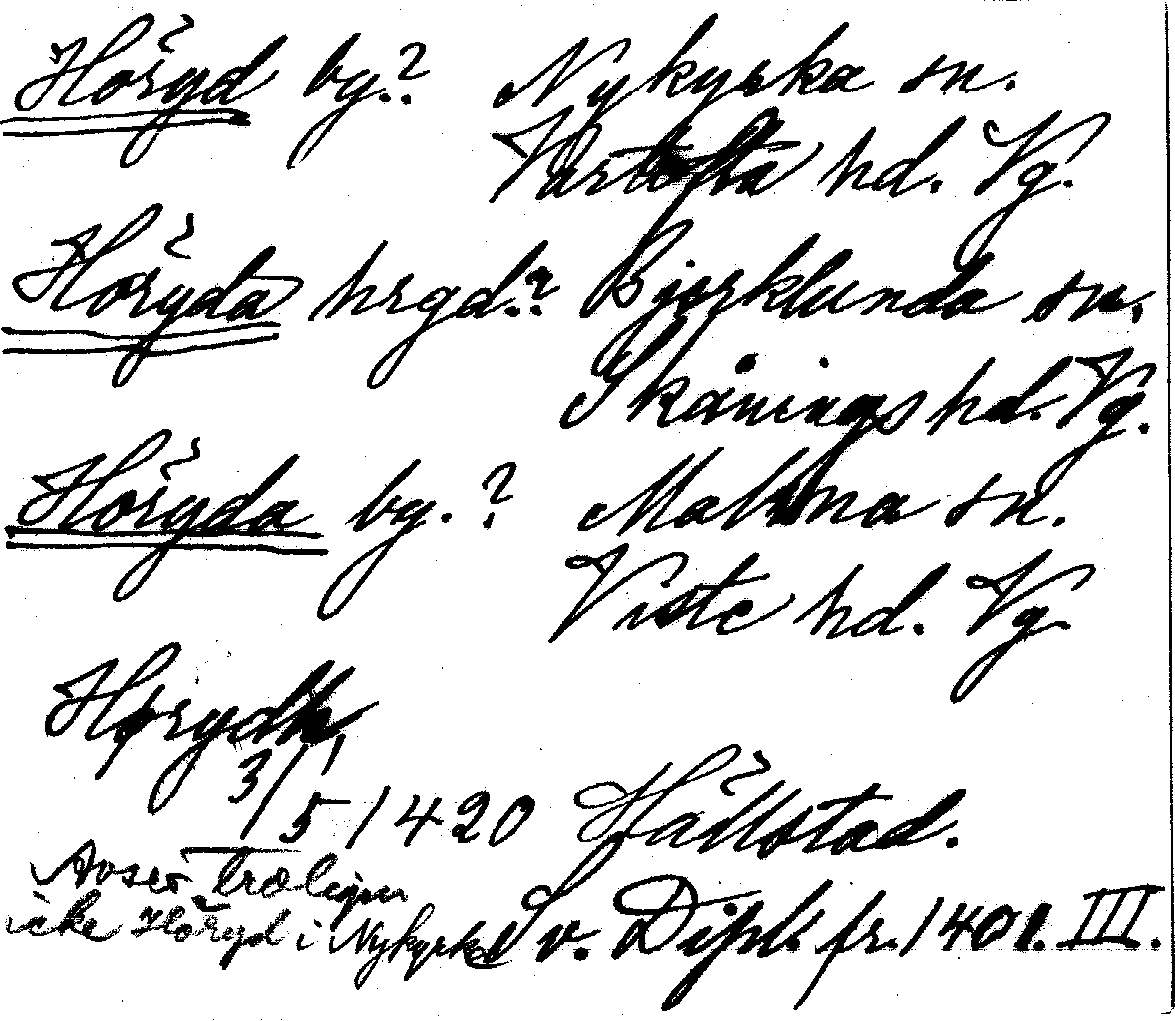 Höryd by.? Nykyrka sn.
Vartofta hd. Vg.
Höryda hrgd.? Bjärklunda sn.
Skånings hd. Vg.
Höryda by.? Malma sn.
Viste hd. Vg.
Hørydh,
3/5 1420 Hällstad.
Avser troligen
icke Höryd i Nykyrka
Sv. Dipl. fr. 1401. III.